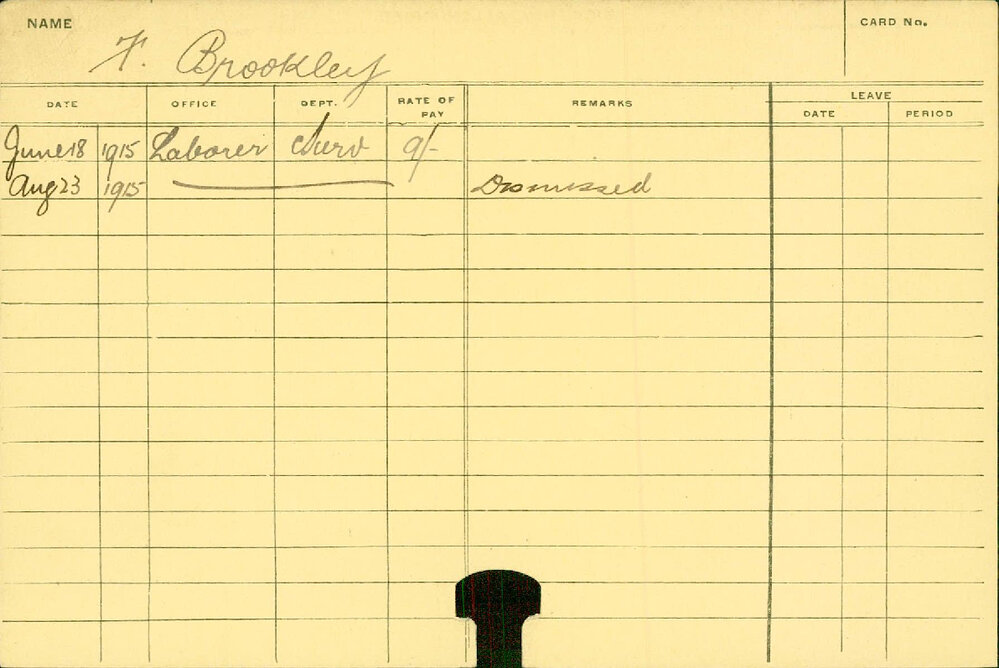 NAME
CARD No.
F. Brookley
DATE OFFICE DEPT. RATE OF PAY REMARKS LEAVE
DATE PERIOD
June 18 1915 Laborer Surv 9/-
Aug 23 1915 Dismissed